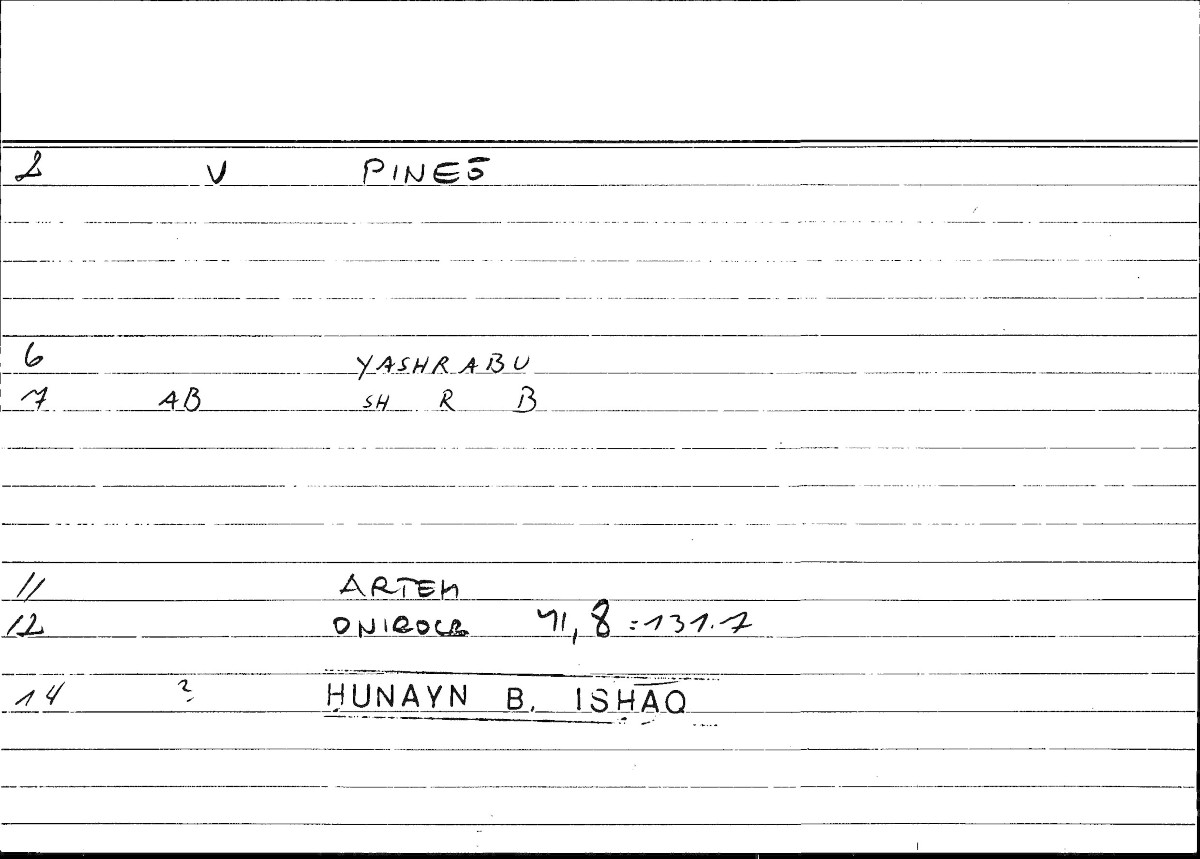 2 V PINES
6 YASHRABU
7 AB SH R B
11 ARTEM
12 ONIROCR 41, 8 = 131.7
14 ? HUNAYN B. ISHĀQ